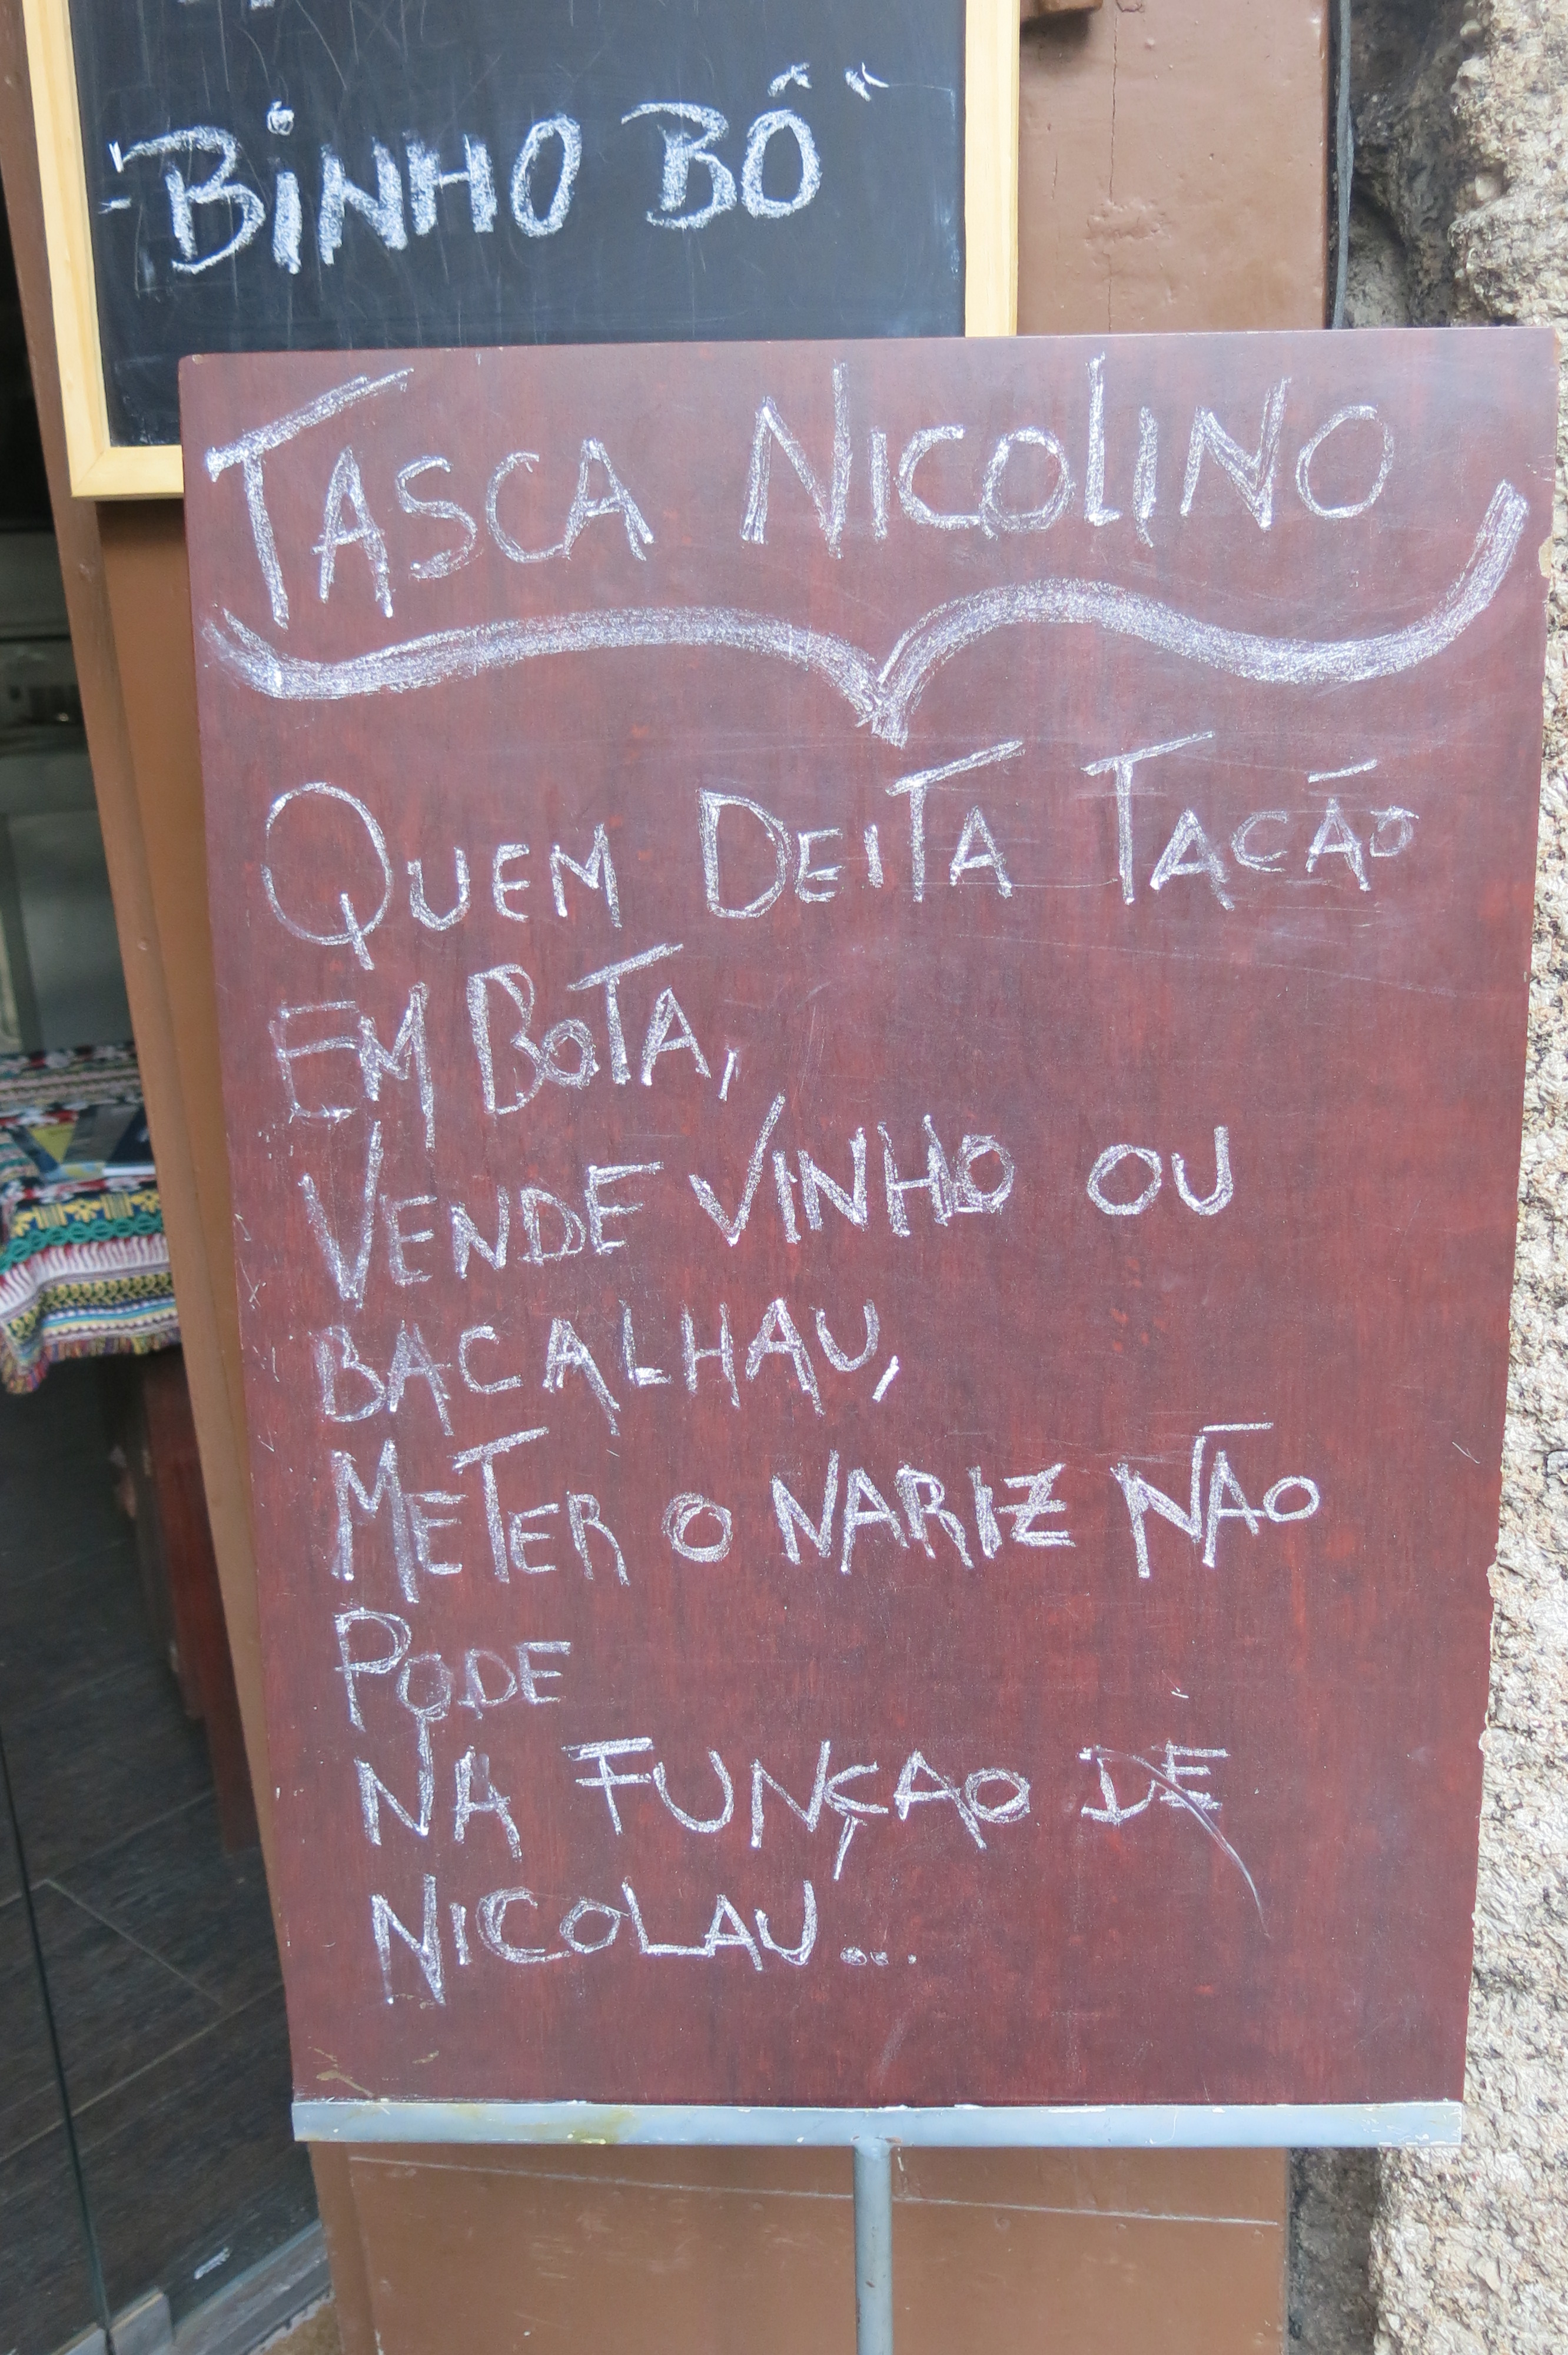 "BiNHO BÔ"
TASCA NICOLINO
QUEM DEITA TACÃO
EM BOTA,
VENDE VINHO OU
BACALHAU,
METER O NARIZ NÃO
PODE
NA FUNÇAO DE
NICOLAU...